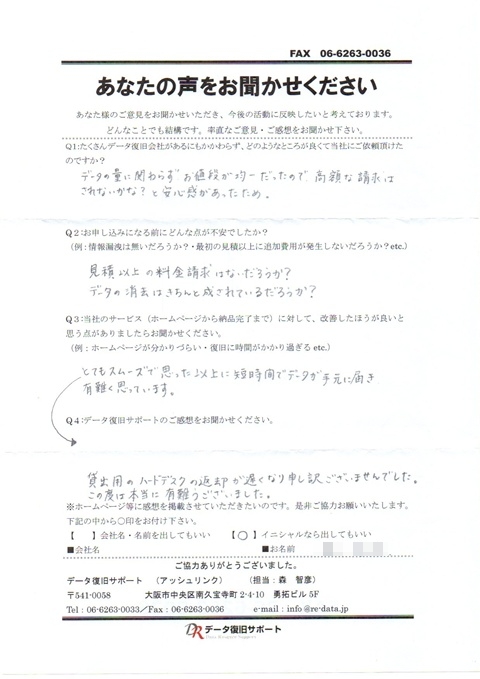 FAX 06-6263-0036
あなたの声をお聞かせください
あなた様のご意見をお聞かせいただき、今後の活動に反映したいと考えております。
どんなことでも結構です。率直なご意見・ご感想をお聞かせ下さい。
Q1:たくさんデータ復旧会社があるにもかかわらず、どのようなところが良くて当社にご依頼頂けた
のですか？
データの量に関わらず お値段が均一だったので 高額な請求は
されないかな？と安心感があったため。
Q２:お申し込みになる前にどんな点が不安でしたか？
（例：情報漏洩は無いだろうか？・最初の見積以上に追加費用が発生しないだろうか？etc.）
見積以上の料金請求はないだろうか？
データの消去はきちんと成されているだろうか？
Q３:当社のサービス（ホームページから納品完了まで）に対して、改善したほうが良いと
思う点がありましたらお聞かせください。
（例：ホームページが分かりづらい・復旧に時間がかかり過ぎる etc.）
とてもスムーズで思った以上に短時間でデータが手元に届き
有難く思っています。
Q４:データ復旧サポートのご感想をお聞かせください。
貸出用のハードディスクの返却が遅くなり申し訳ございませんでした。
この度は本当に有難うございました。
※ホームページ等に感想を掲載させていただきたいのです。是非ご協力お願いいたします。
下記の中から○印をお付け下さい。
【　】会社名・名前を出してもいい　【○】イニシャルなら出してもいい
■会社名　■お名前
ご協力ありがとうございました。
データ復旧サポート　（アッシュリンク）　（担当：森　智彦）
〒541-0058　大阪市中央区南久宝寺町 2-4-10　勇拓ビル 5F
Tel：06-6263-0033／Fax：06-6263-0036　e-mail：info@re-data.jp
DR データ復旧サポート
Data Recovery Support